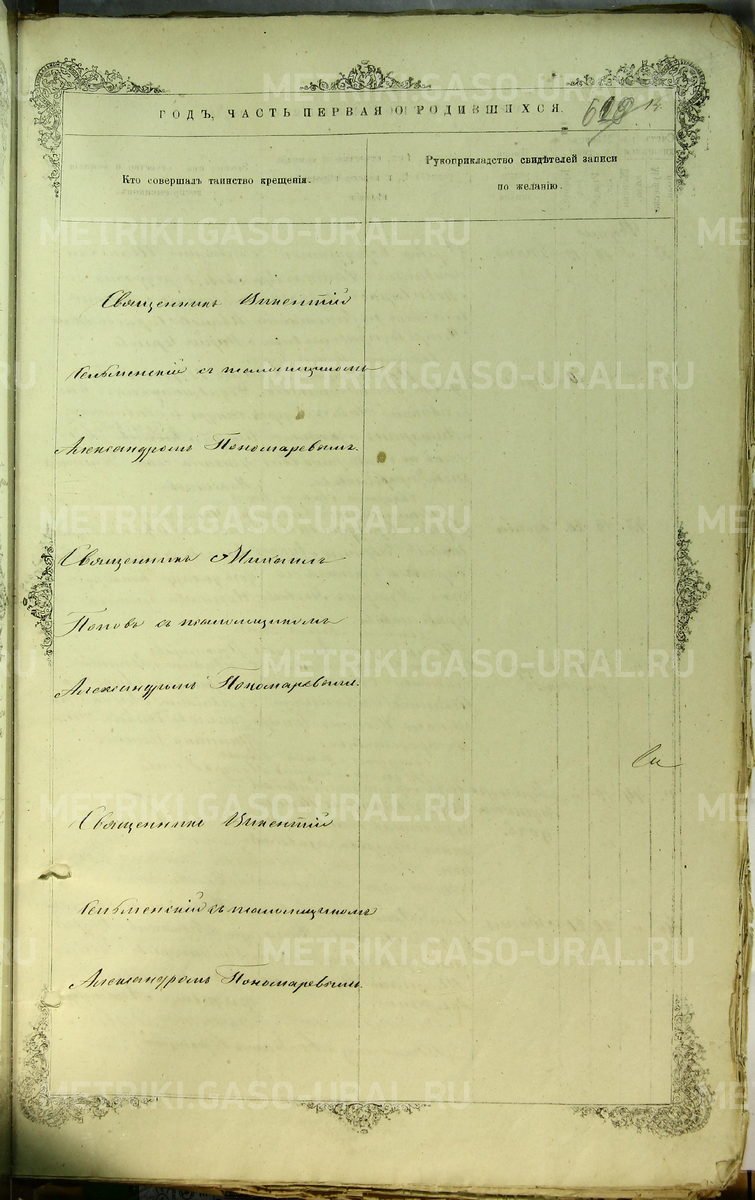 ГОДЪ, ЧАСТЬ ПЕРВАЯ О РОДИВШИХСЯ.
Кто совершалъ таинство крещенія.
Рукоприкладство свидѣтелей записи
по желанію.
Священникъ Викентій
съ псаломщикомъ
Александромъ Пономаревымъ.
Священникъ Михаилъ
Поповъ съ псаломщикомъ
Александромъ Пономаревымъ.
Священникъ Викентій
съ псаломщикомъ
Александромъ Пономаревымъ.
METRIKI.GASO-URAL.RU